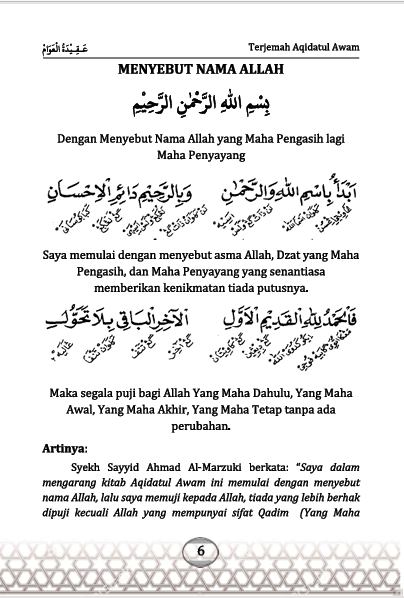 عَقِيْدَةُ الْعَوَامْ
Terjemah Aqidatul Awam
MENYEBUT NAMA ALLAH
بِسْمِ اللهِ الرَّحْمٰنِ الرَّحِيْمِ
Dengan Menyebut Nama Allah yang Maha Pengasih lagi
Maha Penyayang
اَبْدَأُ بِاسْمِ اللهِ وَالرَّحْمٰنِ وَبِالرَّحِيْمِ دَائِمِ الْاِحْسَانِ
Saya memulai dengan menyebut asma Allah, Dzat yang Maha
Pengasih, dan Maha Penyayang yang senantiasa
memberikan kenikmatan tiada putusnya.
فَالْحَمْدُ لِلّٰهِ الْقَدِيْمِ الْاَوَّلِ الْآخِرِ الْبَاقِيْ بِلَا تَحَوُّلِ
Maka segala puji bagi Allah Yang Maha Dahulu, Yang Maha
Awal, Yang Maha Akhir, Yang Maha Tetap tanpa ada
perubahan.
Artinya:
Syekh Sayyid Ahmad Al-Marzuki berkata: “Saya dalam
mengarang kitab Aqidatul Awam ini memulai dengan menyebut
nama Allah, lalu saya memuji kepada Allah, tiada yang lebih berhak
dipuji kecuali Allah yang mempunyai sifat Qadim (Yang Maha
6